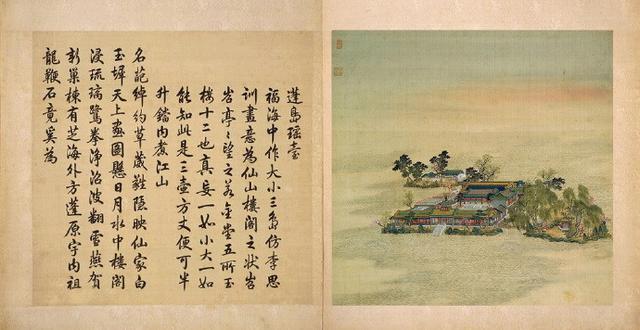 蓬島瑶臺
福海中作大小三島仿李思
訓畫意為仙山樓閣之狀岧
岧亭〻望之若金堂五所玉
樓十二也真妄一如小大一如
能知此是三壺方丈便可半
升鐺内煮江山
名葩綽約草葳蕤隱映仙家白
玉墀天上畫圖懸日月水中樓閣
浸琉璃鷺拳淨沼波翻雪燕賀
新巢棟有芝海外方蓬原宇内祖
龍鞭石竟奚為